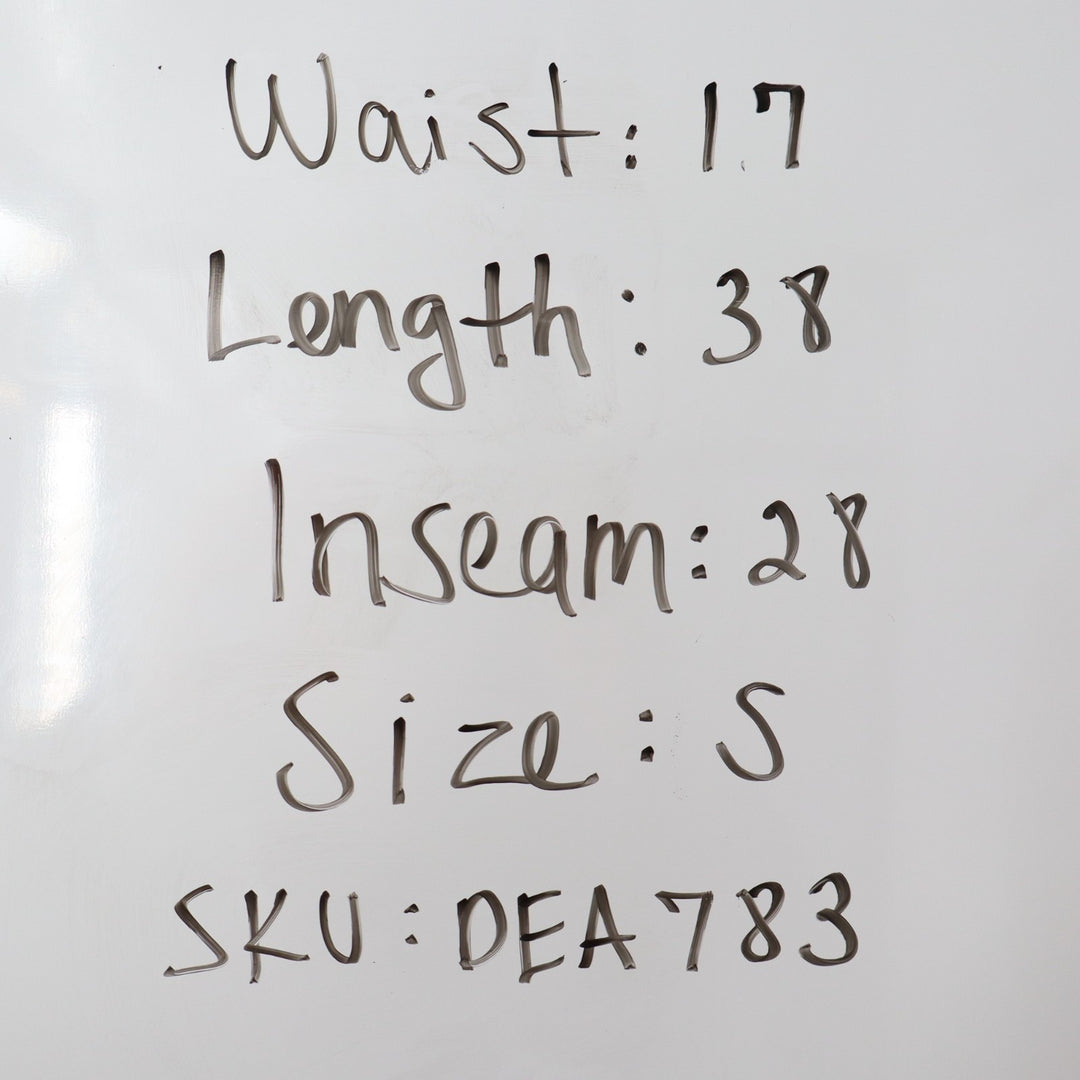 Waist: 17
Length: 38
Inseam: 28
Size: S
SKU: DEA783